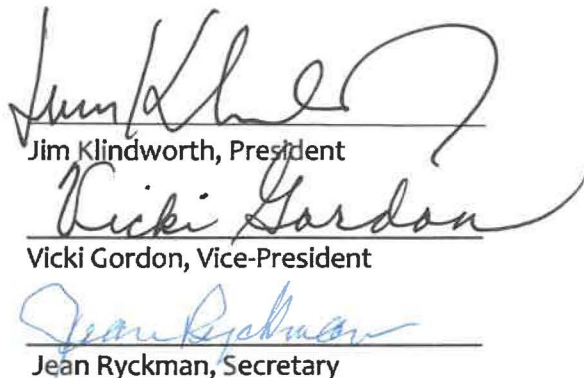 Jim Klindworth
Jim Klindworth, President
Vicki Gordon
Vicki Gordon, Vice-President
Jean Ryckman
Jean Ryckman, Secretary